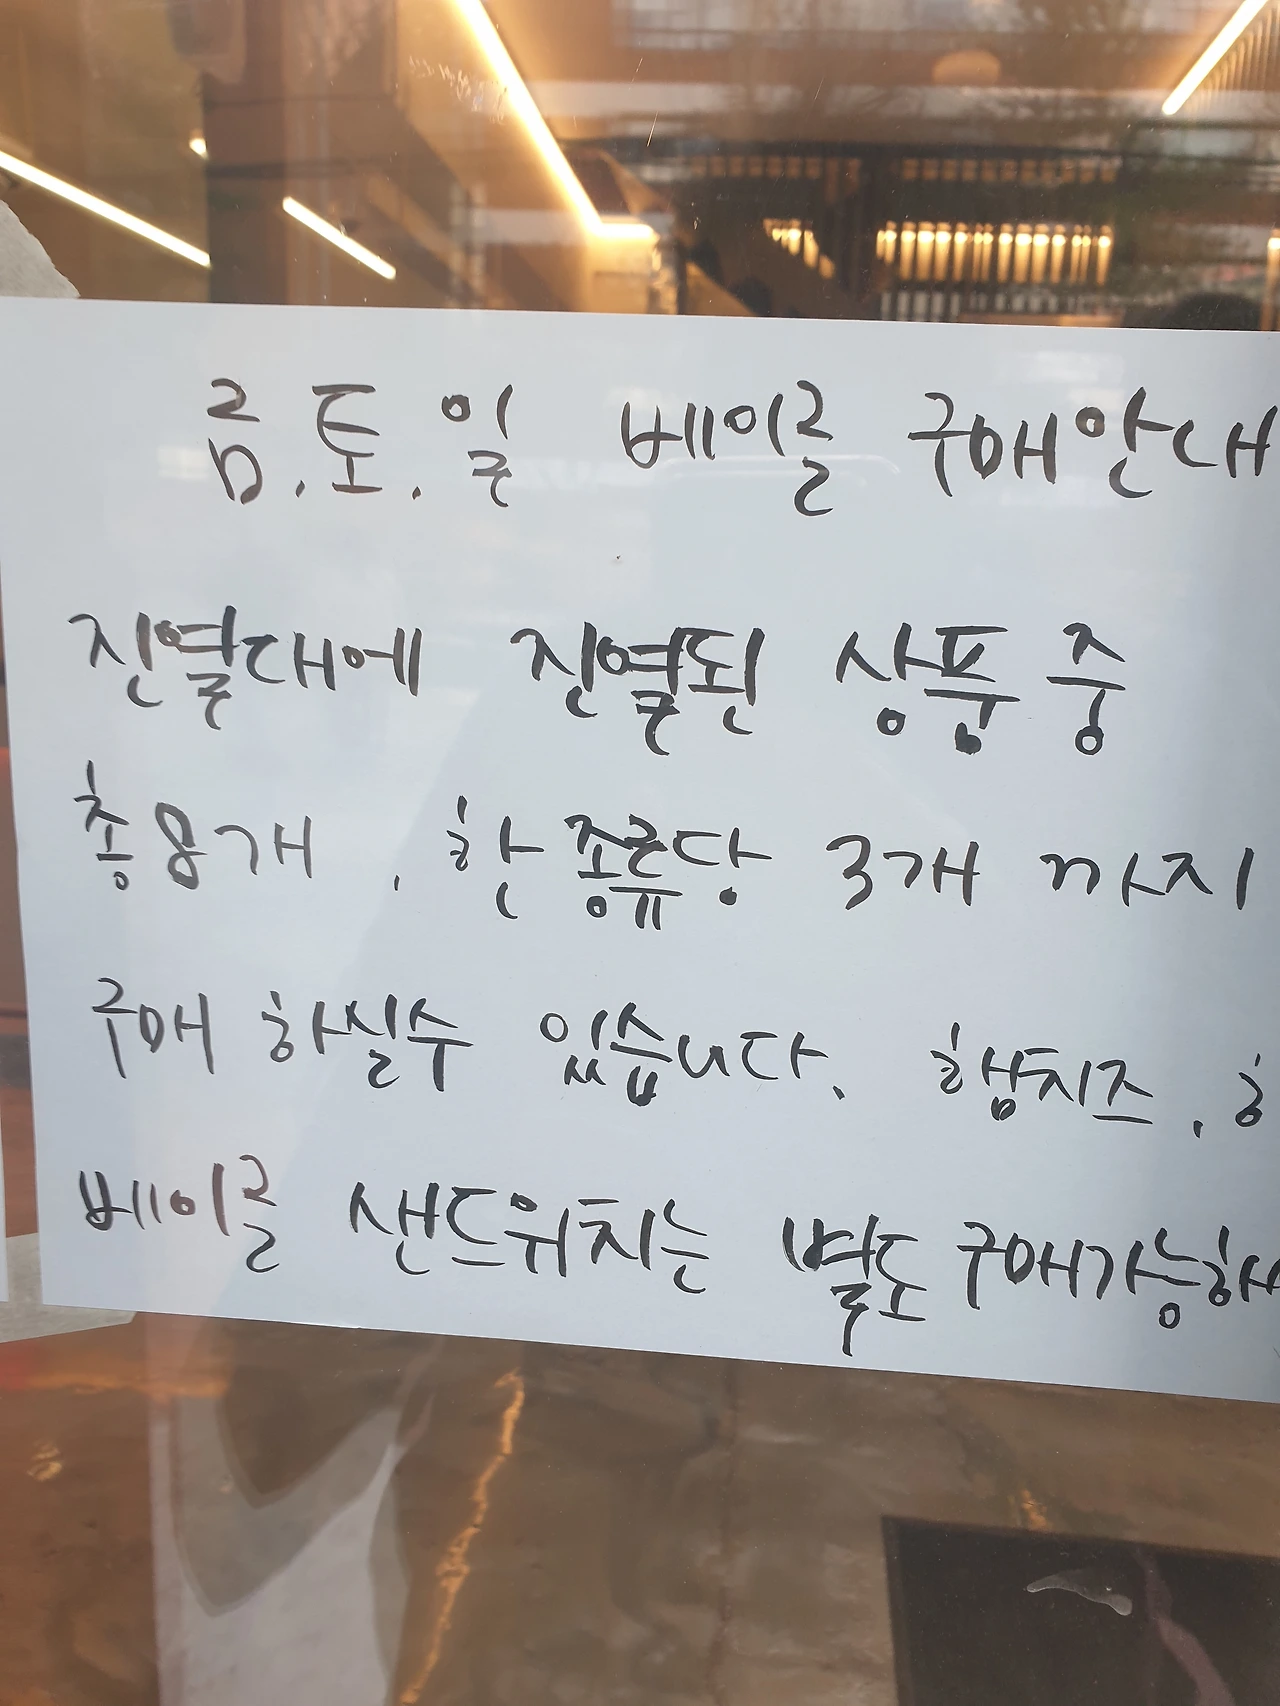 금.토.일 베이글 구매안내
진열대에 진열된 상품 중
총 8개, 한 종류당 3개 까지
구매 하실수 있습니다. 햄치즈,
베이글 샌드위치는 별도 구매가능